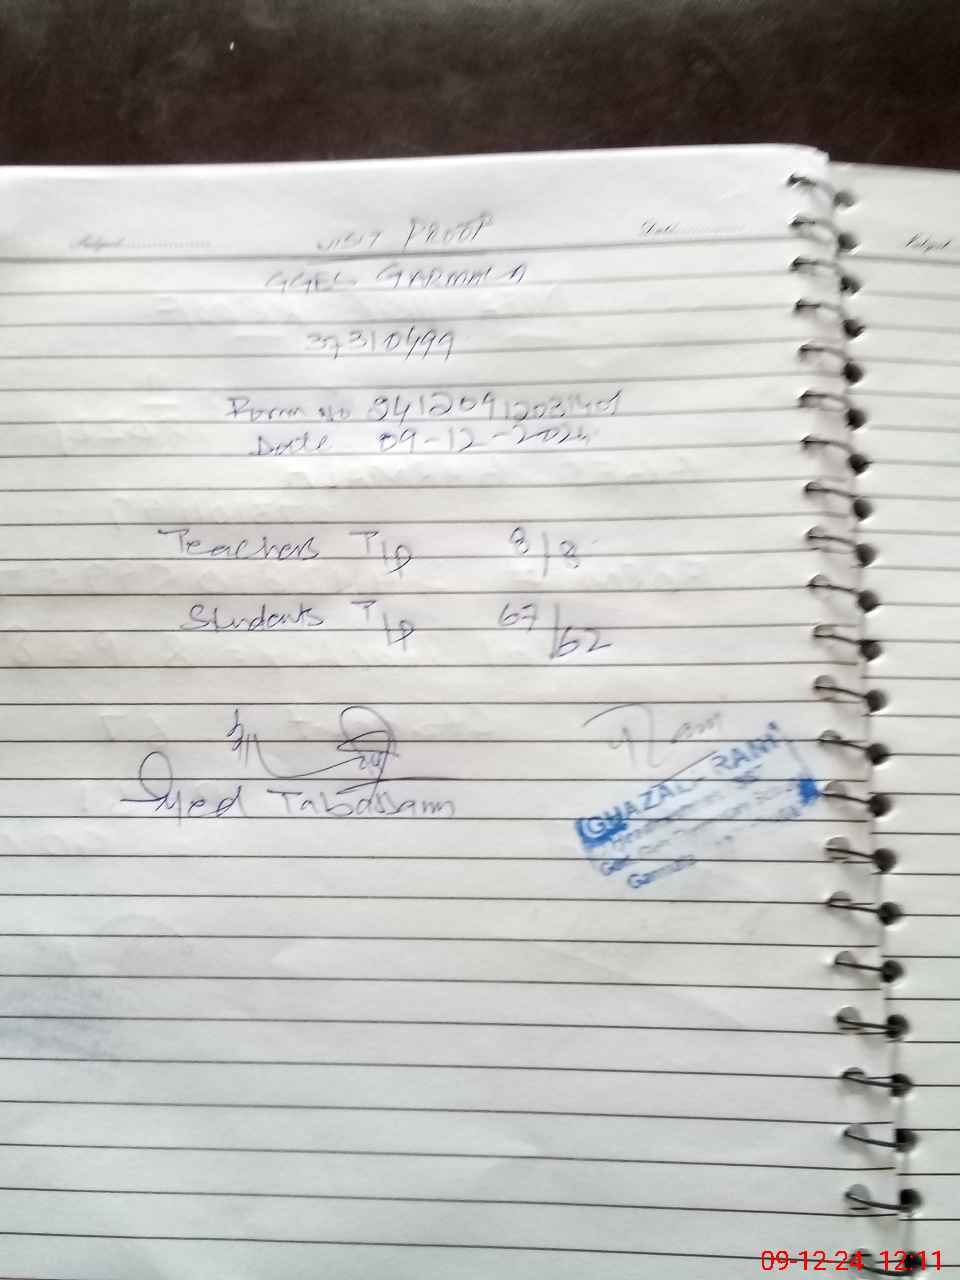 Subject................ VISIT PROOF Date................
GGES GARMALA
37310499
Form No 94120912031401
Date 09-12-2024
Teachers T/P 8/8
Students T/P 67/62
Syed Tabassam
GHAZALA RANI
Garmala
Subject
09-12-24 12:11